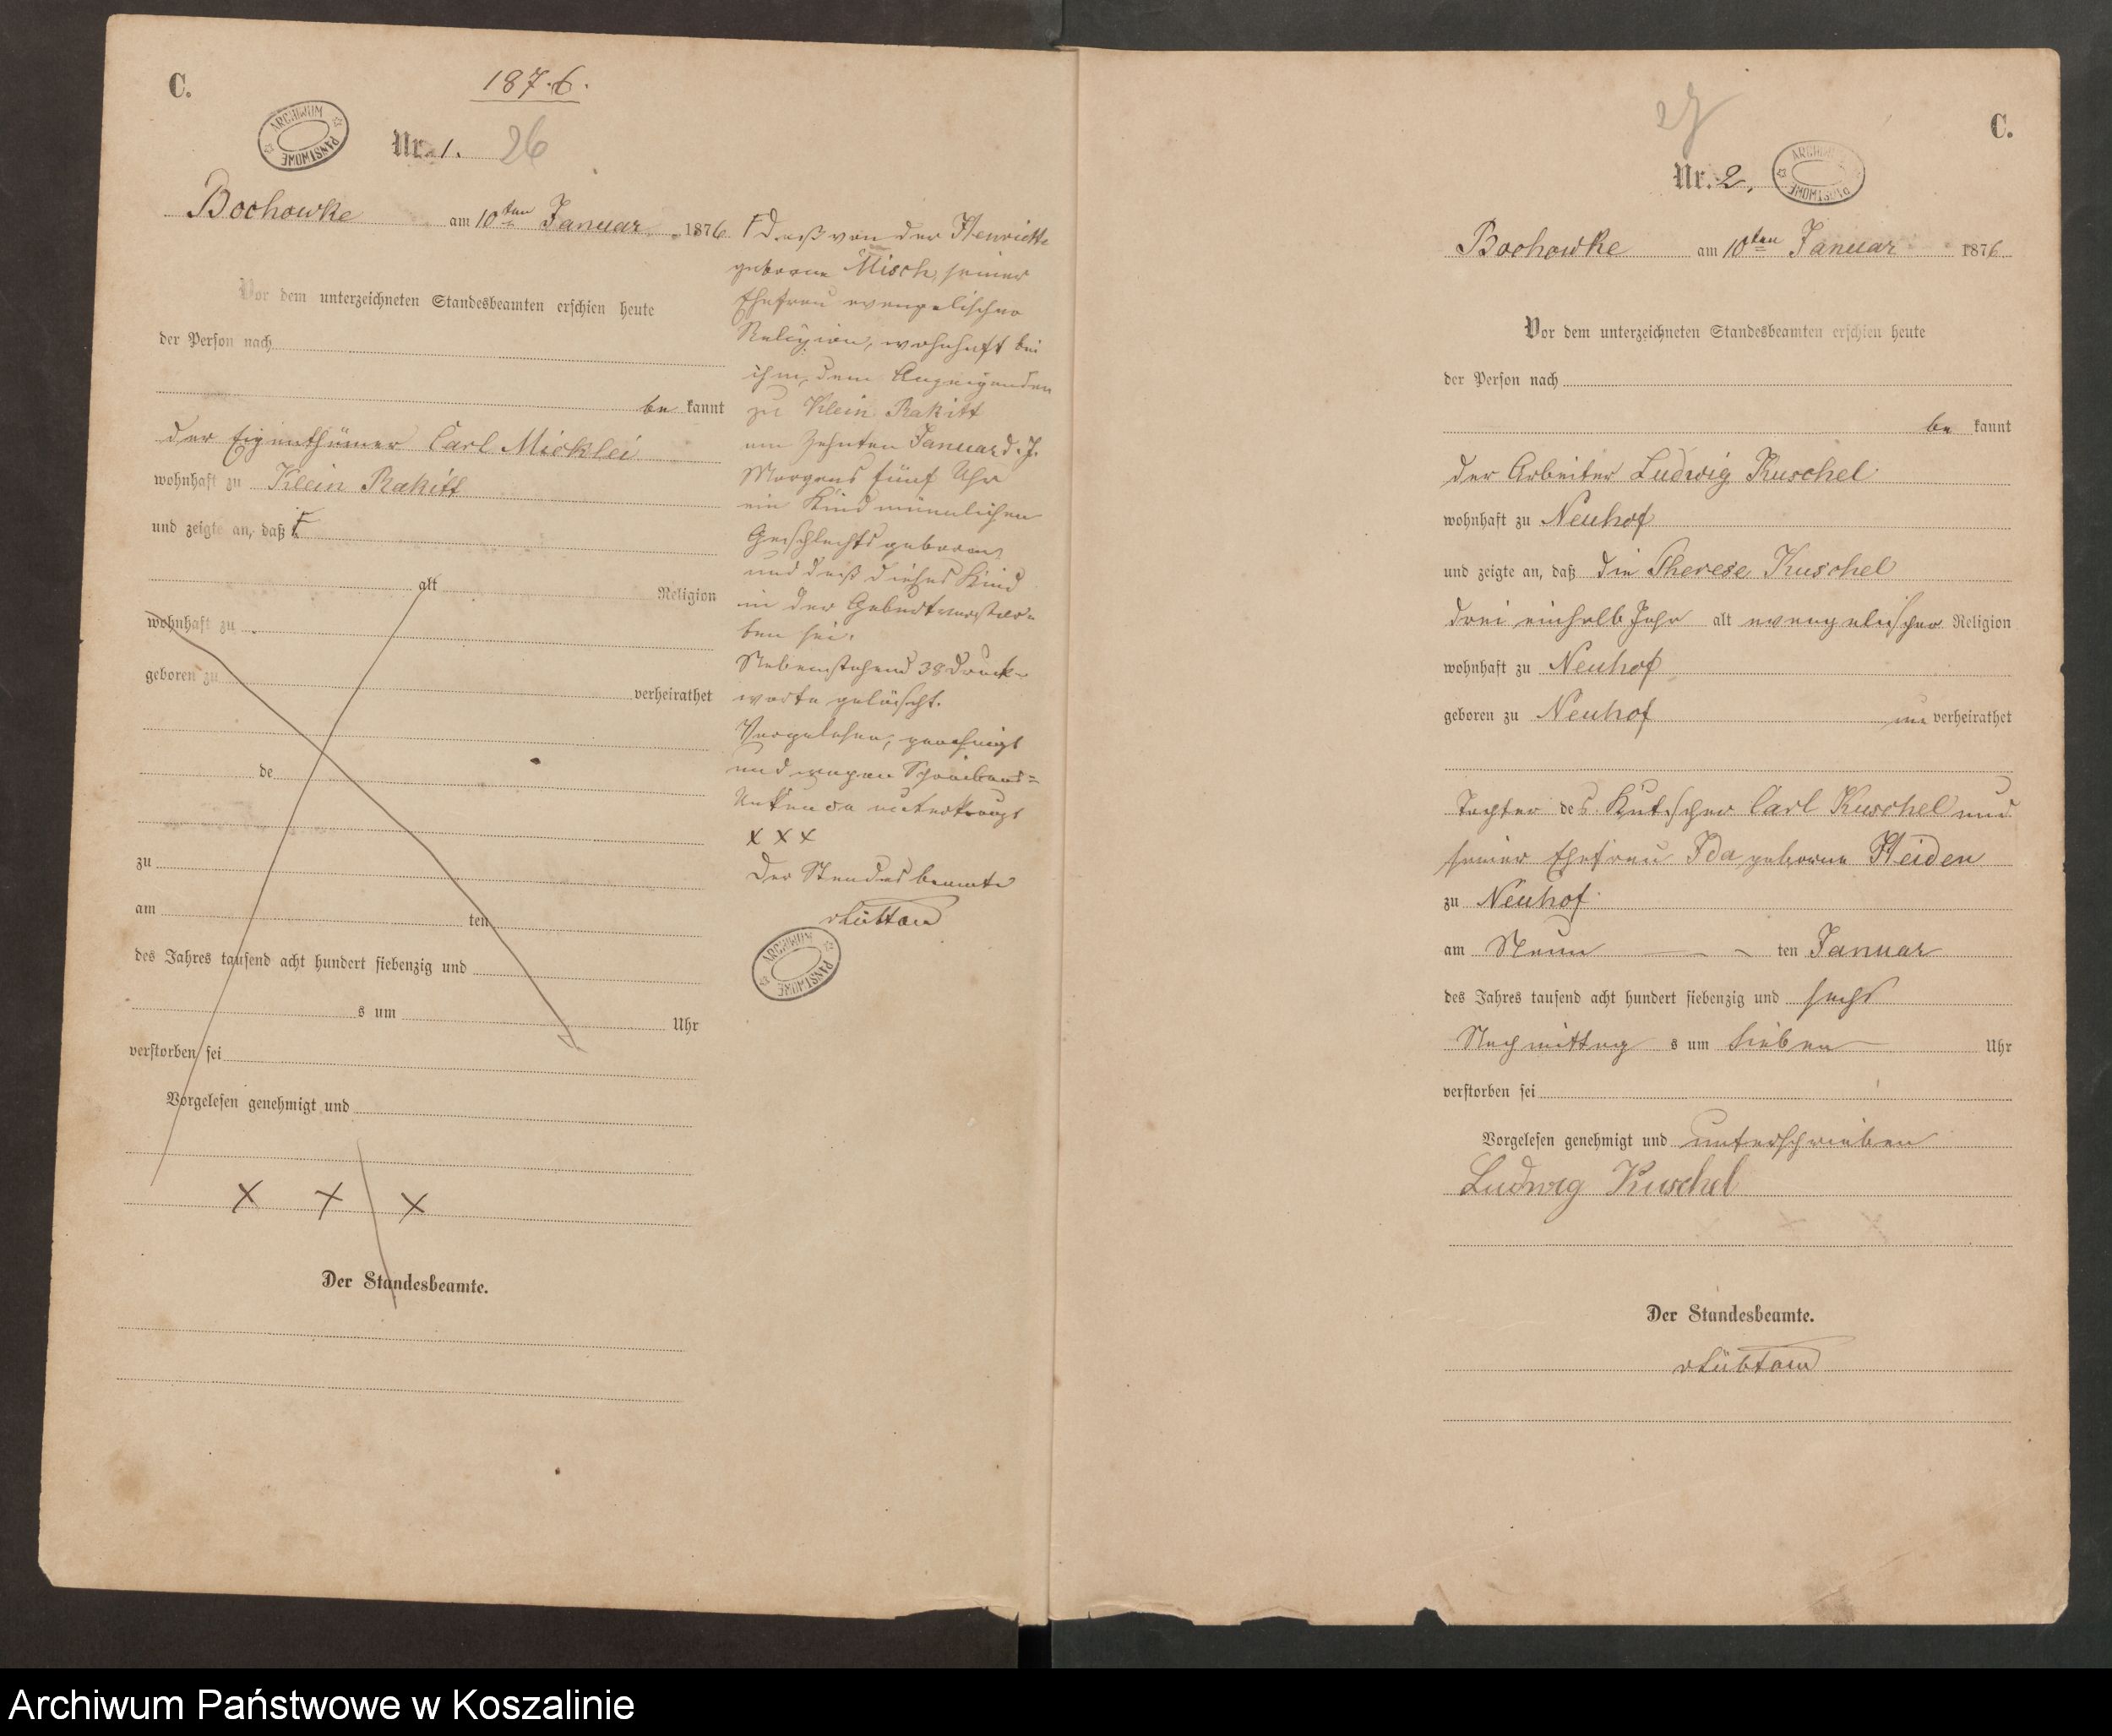 C.
1876.
ARCHIWUM PAŃSTWOWE
Nr. 1. 26
Bochowke am 10ten Januar 1876
Vor dem unterzeichneten Standesbeamten erschien heute
der Person nach
be kannt
der Eigenthümer Carl Micklei
wohnhaft zu Klein Rakitt
und zeigte an, daß F
alt Religion
wohnhaft zu
geboren zu
verheirathet
de
zu
am ten
des Jahres tausend acht hundert siebenzig und
s um Uhr
verstorben sei
Vorgelesen genehmigt und
x x x
Der Standesbeamte.
F daß von der Henriette
geborne Misch, seiner
Ehefrau evangelischer
Religion, wohnhaft bei
ihm, dem Anzeigenden
zu Klein Rakitt
am zehnten Januar d. J.
Morgens fünf Uhr
ein Kind männlichen
Geschlechts geboren
und daß dieses Kind
in der Geburt verstor-
ben sei.
Nebenstehend 38 Druck-
worte gelöscht.
Vorgelesen, genehmigt
und wegen Schreibens-
Unkunde unterkreuzt
x x x
Der Standesbeamte
vLübtow
ARCHIWUM PAŃSTWOWE
27
C.
Nr. 2.
ARCHIWUM PAŃSTWOWE
Bochowke am 10ten Januar 1876
Vor dem unterzeichneten Standesbeamten erschien heute
der Person nach
be kannt
der Arbeiter Ludwig Kuschel
wohnhaft zu Neuhof
und zeigte an, daß die Therese Kuschel
drei einhalb Jahr alt evangelischer Religion
wohnhaft zu Neuhof
geboren zu Neuhof un verheirathet
Tochter des Kutscher Carl Kuschel und
seiner Ehefrau Ida, geborne Heiden
zu Neuhof
am Neun ten Januar
des Jahres tausend acht hundert siebenzig und sechs
Nachmittag s um sieben Uhr
verstorben sei
Vorgelesen genehmigt und unterschrieben
Ludwig Kuschel
Der Standesbeamte.
vLübtow
Archiwum Państwowe w Koszalinie